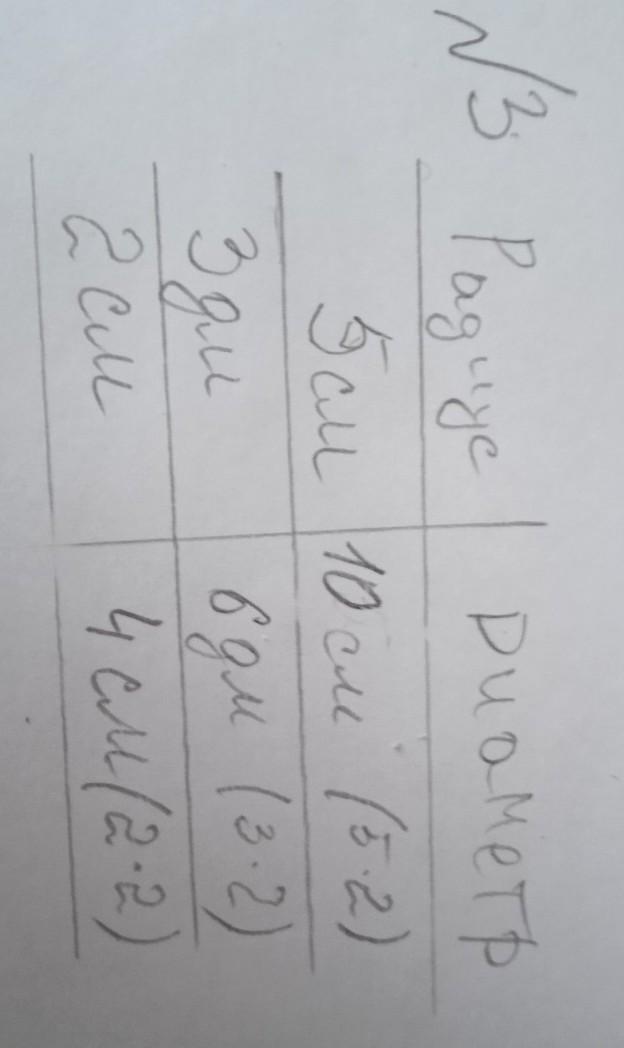 №3.
Радиус Диаметр
5см 10см (5·2)
3дм 6дм (3·2)
2см 4см (2·2)